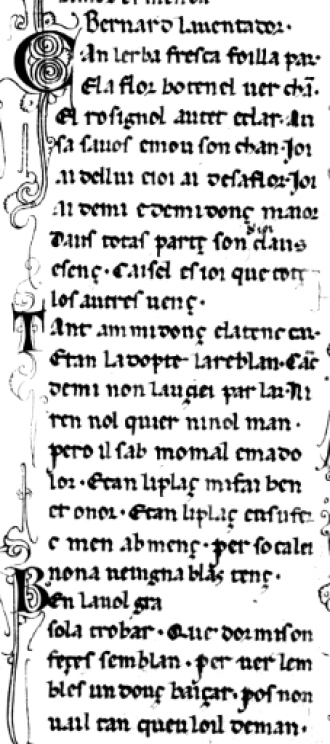 Bernard Lauentador·
Can lerba fresca foilla par·
Ela flor botenel uer chā·
El rosignol auter eclar·Au
sa sauos emou son chan·Joi
ai dellui eioi ai desaflor·Joi
ai demi edemi donç maior
Daus totas partç son claus
esenç·Caisel es ioi que totç
los autres uenç·
Tant am mi donç elatenc car·
Etan la dopte lareblan·Cāc
demi non lauçei parlar·Ni
ren nol quier ni nol man·
pero il sab mo mal emado
lor·Etan liplaç mi fai ben
et onor·Etan liplaç eu sufer
e men ab menç·per so calei
nona ueingna blasmenç·
Ben lauol gra
sola trobar·Que dormis on
feçes semblan·per uer lem
bles un douç baiçar·pos non
uail tan queu loil deman·